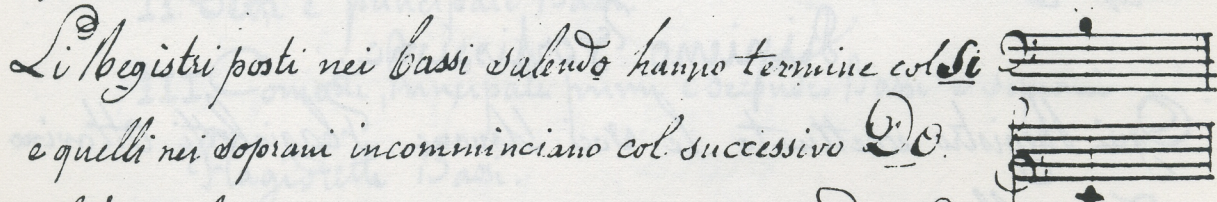 Li Registri posti nei bassi salendo hanno termine col Si
e quelli nei soprani incomminciano col successivo Do.